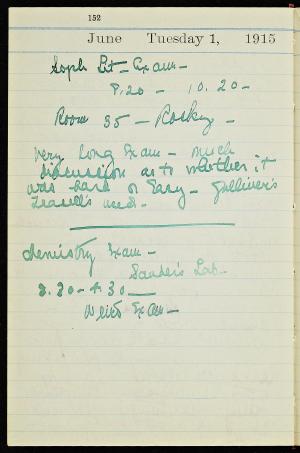 152
June Tuesday 1, 1915
Soph Lit - Exam -
8.20 - 10.20 -
Room 35 - Rocky -
Very long Exam - Much
discussion as to whether it
was hard or Easy - Gulliver's
Travels used -
Chemistry Exam -
Sanders Lab -
2.30 - 4.30
Weird Exam -